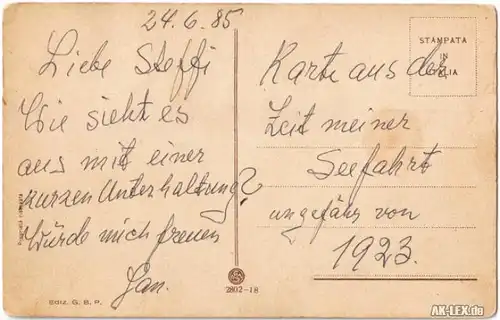 24.6.85
Liebe Steffi
Wie sieht es
aus mit einer
kurzen Unterhaltung?
Würde mich freuen
Jan.
Karte aus der
Zeit meiner
Seefahrt
ungefähr von
1923.
STAMPATA
IN
ITALIA
2802-18
Ediz. G. B. P.
AK-LEX.de